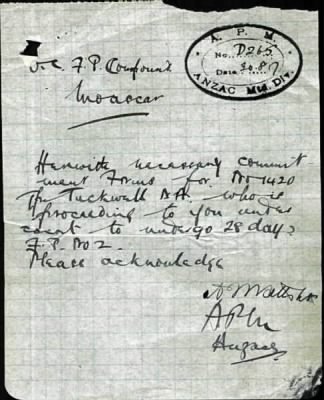 A. P. M.
No. D265
Date 30.8.17
ANZAC Mtd. DIV.
O.C. F.P. Compound
Moascar
Herewith necessary commit-
ment Forms for No 1420
Tpr Tuckwell A.A. who is
proceeding to you under
escort to undergo 28 days
F.P. No 2.
Please acknowledge
APM
Anzac